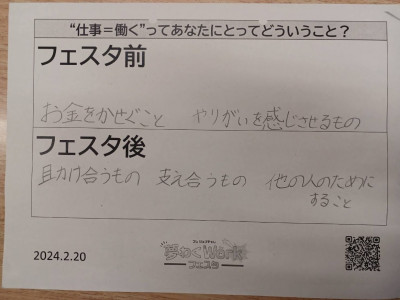 “仕事=働く”ってあなたにとってどういうこと？
フェスタ前
お金をかせぐこと　やりがいを感じさせるもの
フェスタ後
助け合うもの　支え合うもの　他の人のために
すること
2024.2.20
夢わくWork
フェスタ